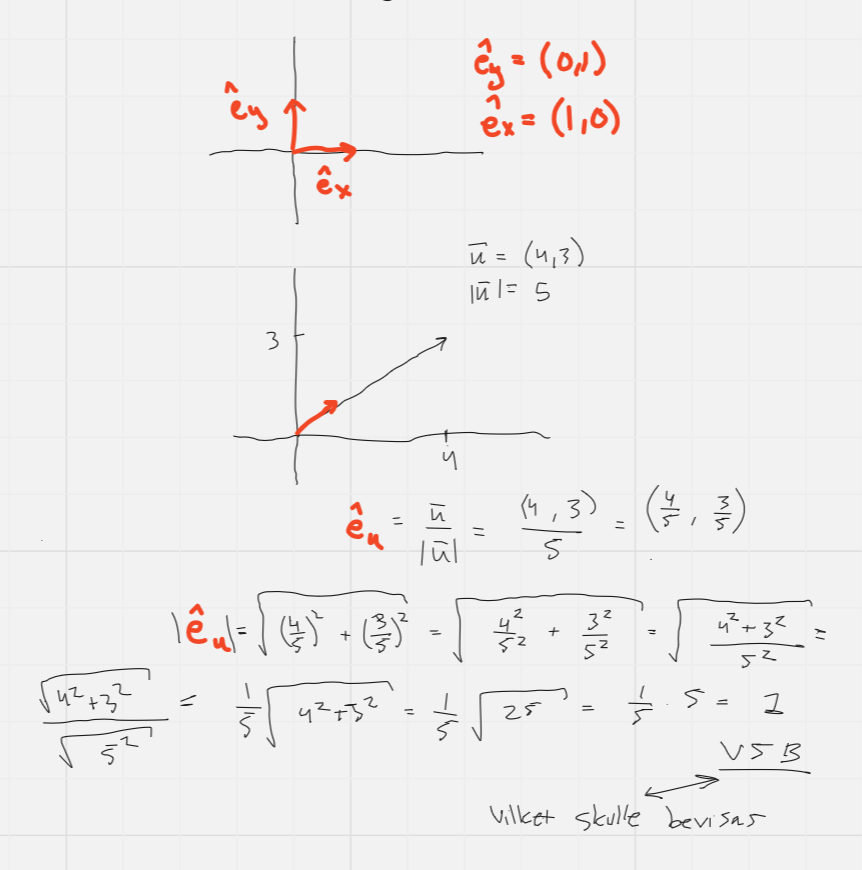 ê_y = (0,1)
ê_y
ê_x = (1,0)
ê_x
ū = (4,3)
|ū| = 5
3
4
ê_u = ū/|ū| = (4,3)/5 = (4/5, 3/5)
|ê_u| = √((4/5)² + (3/5)²) = √(4²/5² + 3²/5²) = √((4²+3²)/5²) =
√(4²+3²)/√(5²) = 1/5 √(4²+3²) = 1/5 √25 = 1/5 · 5 = 1
VSB
vilket skulle bevisas